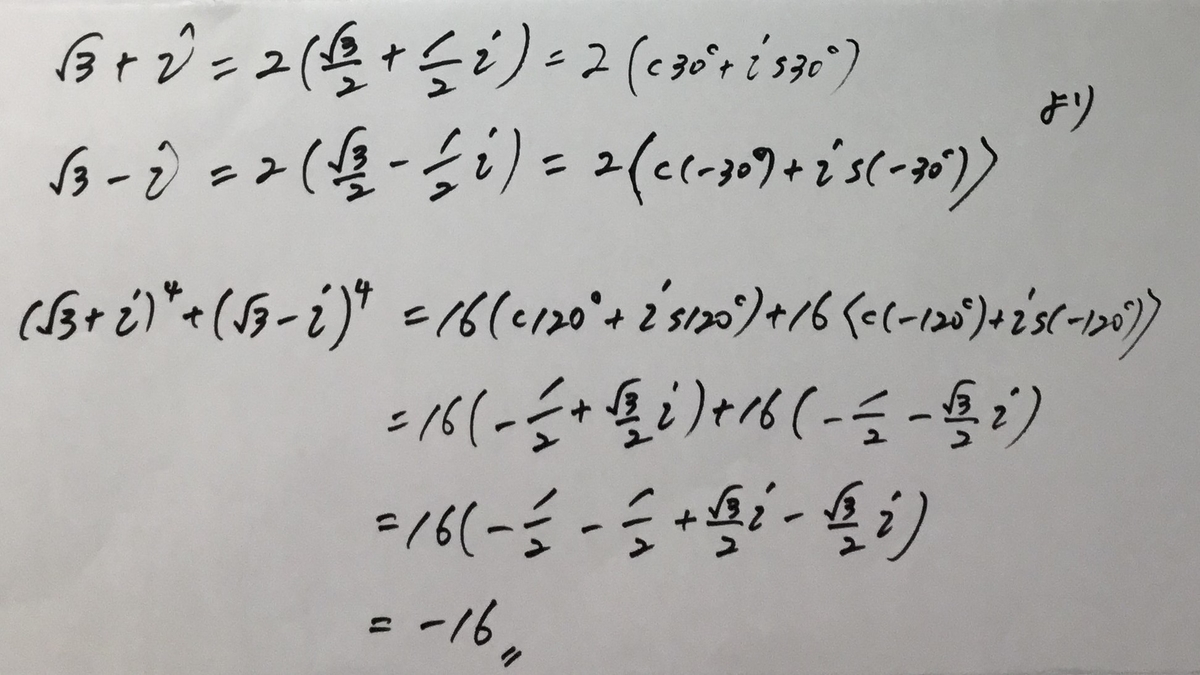 √3 + i = 2(√3/2 + 1/2 i) = 2(c30° + i s30°)
√3 - i = 2(√3/2 - 1/2 i) = 2(c(-30°) + i s(-30°))
より
(√3 + i)⁴ + (√3 - i)⁴ = 16(c120° + i s120°) + 16(c(-120°) + i s(-120°))
= 16(-1/2 + √3/2 i) + 16(-1/2 - √3/2 i)
= 16(-1/2 - 1/2 + √3/2 i - √3/2 i)
= -16〃